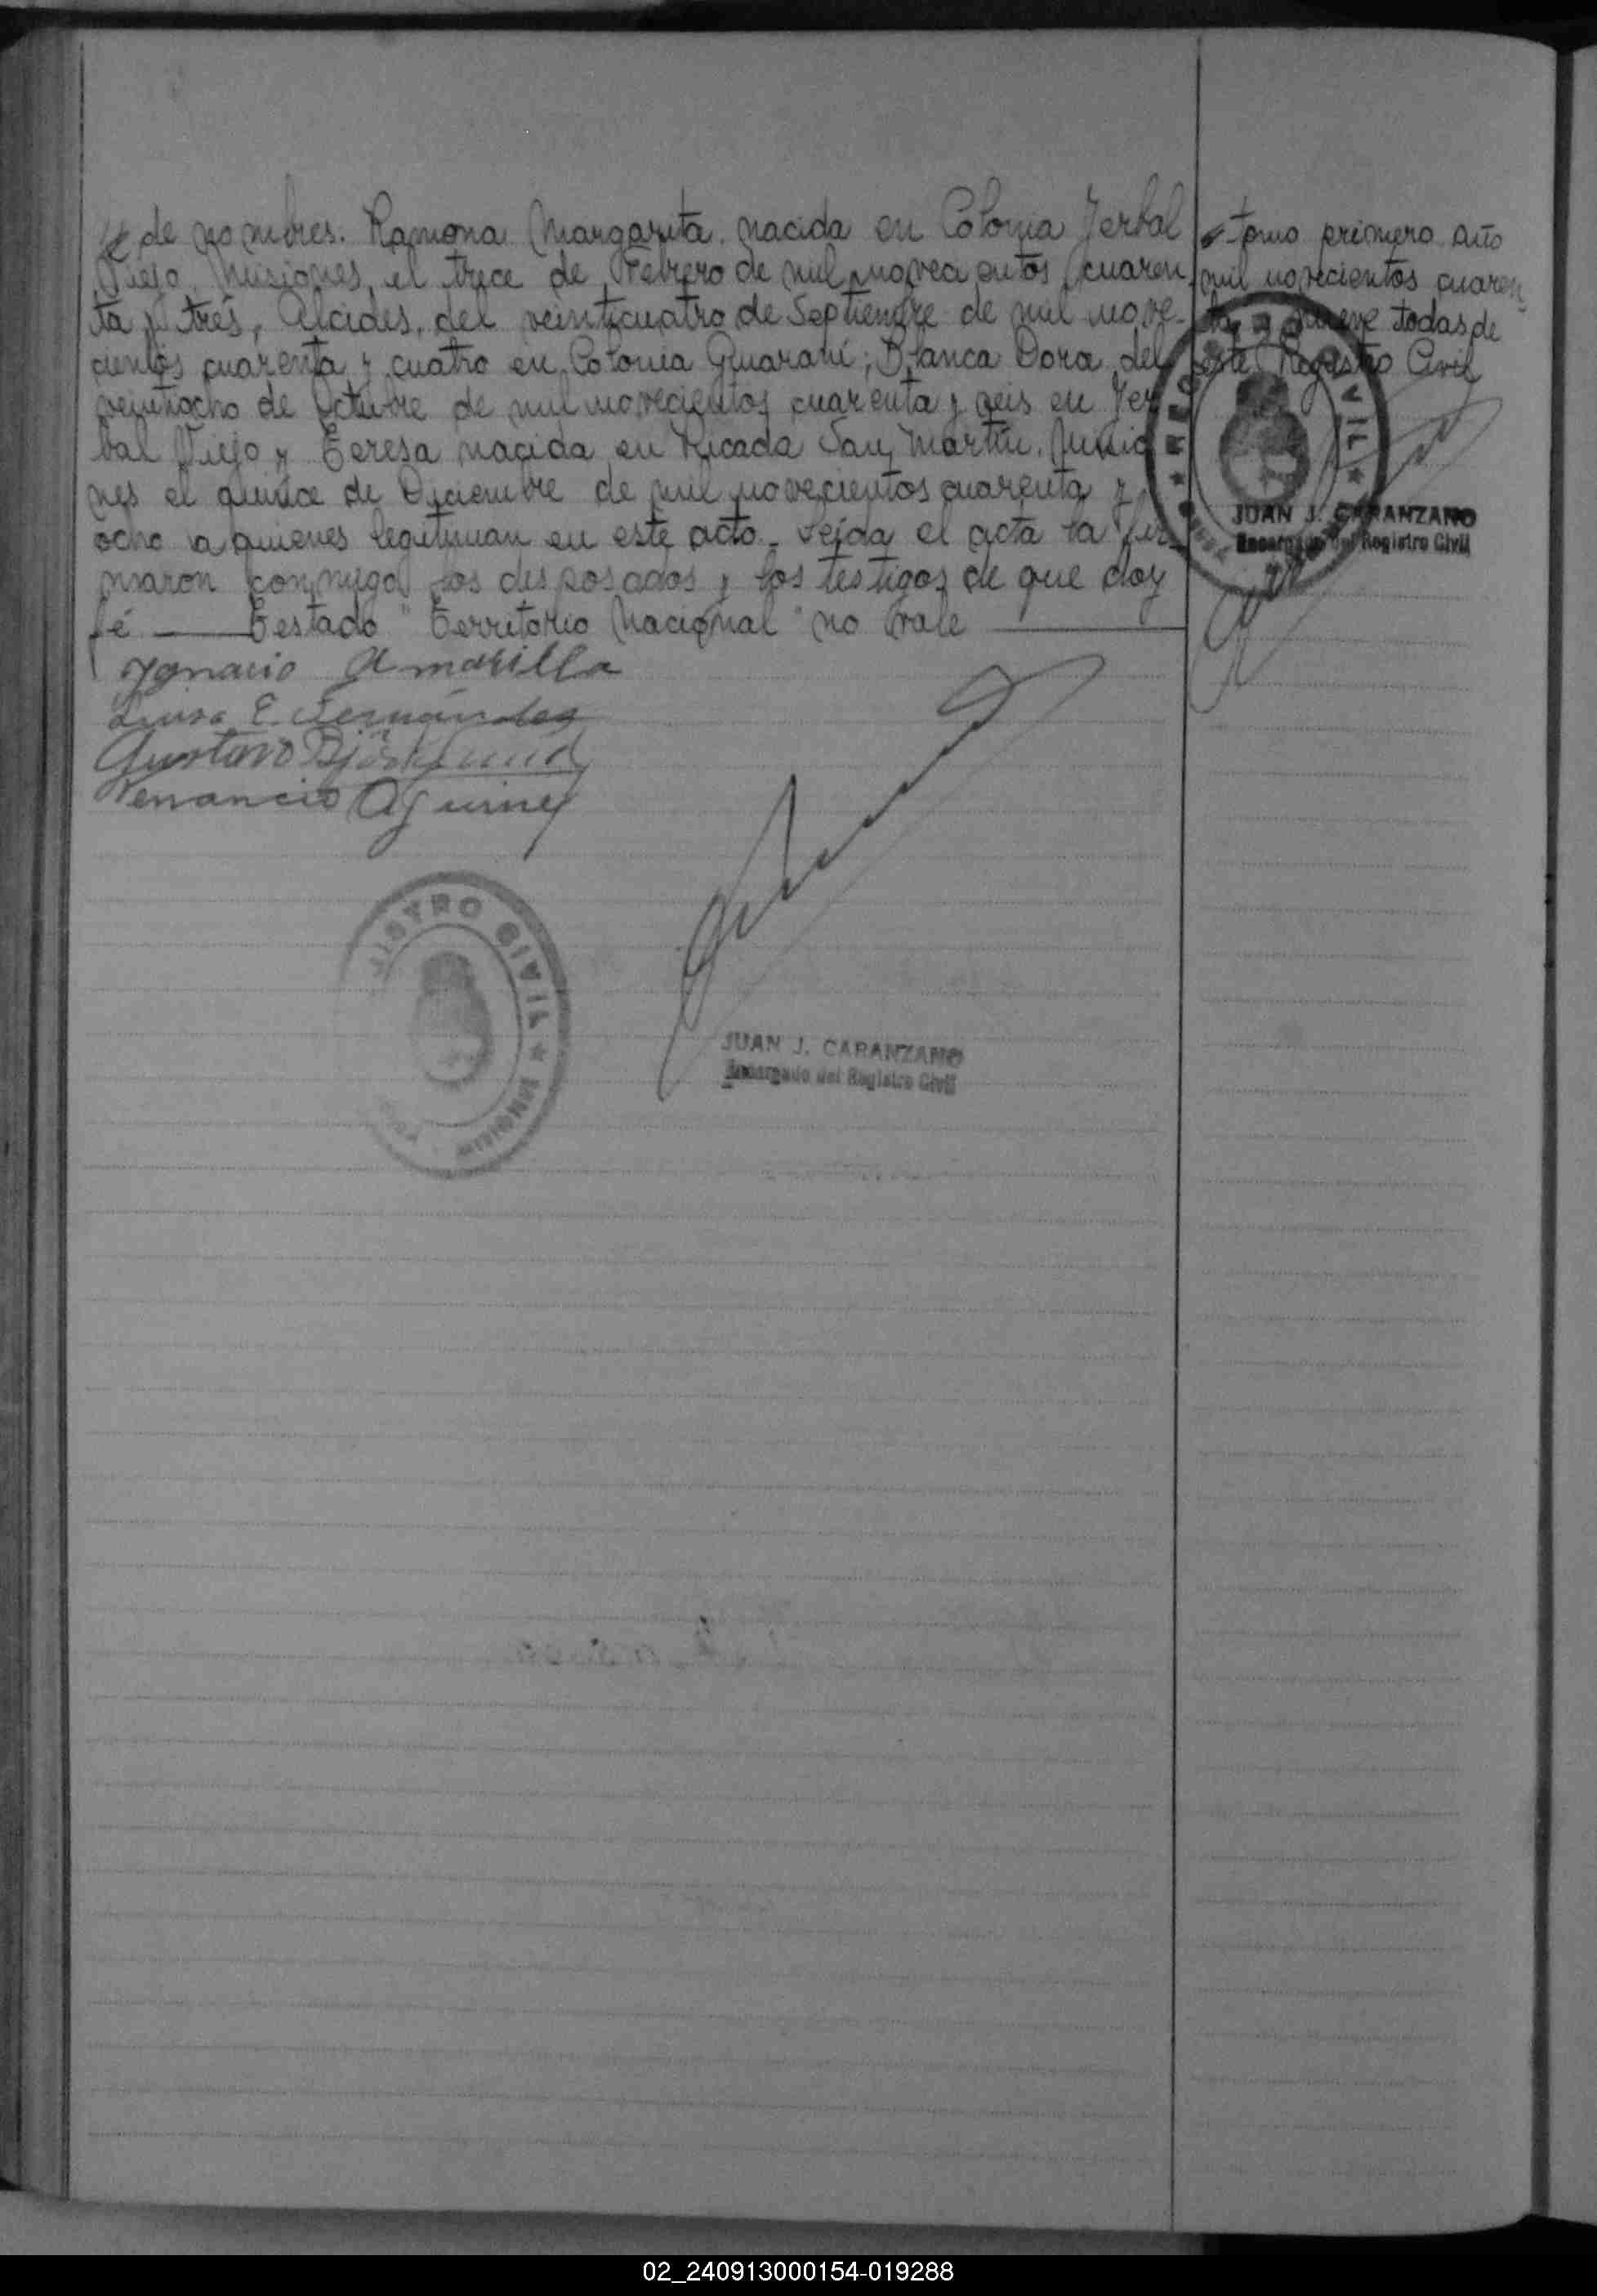 de nombres. Ramona Margarita. nacida en Colonia Yerbal
Viejo. Misiones, el trece de Febrero de mil novecientos cuaren
ta y trés, Alcides, del veinticuatro de Septiembre de mil nove-
cientos cuarenta y cuatro en Colonia Guaraní; Blanca Dora del
veintiocho de Octubre de mil novecientos cuarenta y seis en Yer
bal Viejo y Teresa nacida en Picada San Martín. Misio
nes el quince de Diciembre de mil novecientos cuarenta y
ocho a quienes legitiman en este acto. Leída el acta la fir
maron conmigo los desposados y los testigos de que doy
fé Testado "Territorio Nacional" no vale
Ignacio Amarilla
Luisa E. Fernández
Gustavo
Venancio
JISTRO CIVIL ★ MISIONES
JUAN J. CARANZANO
Encargado del Registro Civil
tomo primero año
mil novecientos cuaren
ta y nueve todas de
este Registro Civil
JUAN J. CARANZANO
Encargado del Registro Civil
02_240913000154-019288